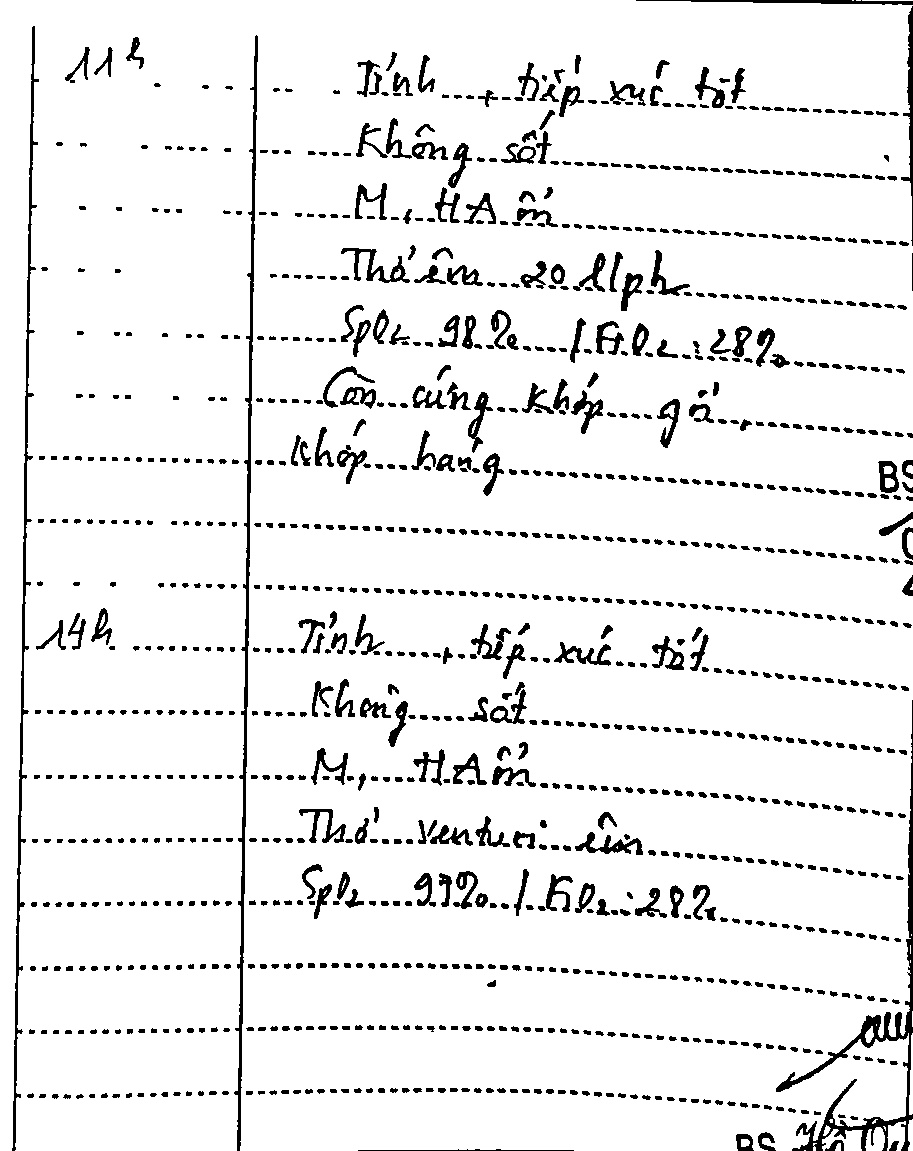 11h
Tỉnh, tiếp xúc tốt
Không sốt
M, HA ổn
Thở êm 20 l/ph
SpO₂ 98% / FiO₂: 28%
Còn cứng khớp gối,
khớp háng
BS
14h
Tỉnh, tiếp xúc tốt
Không sốt
M, HA ổn
Thở venturi êm
SpO₂ 97% / FiO₂: 28%
BS Hồ